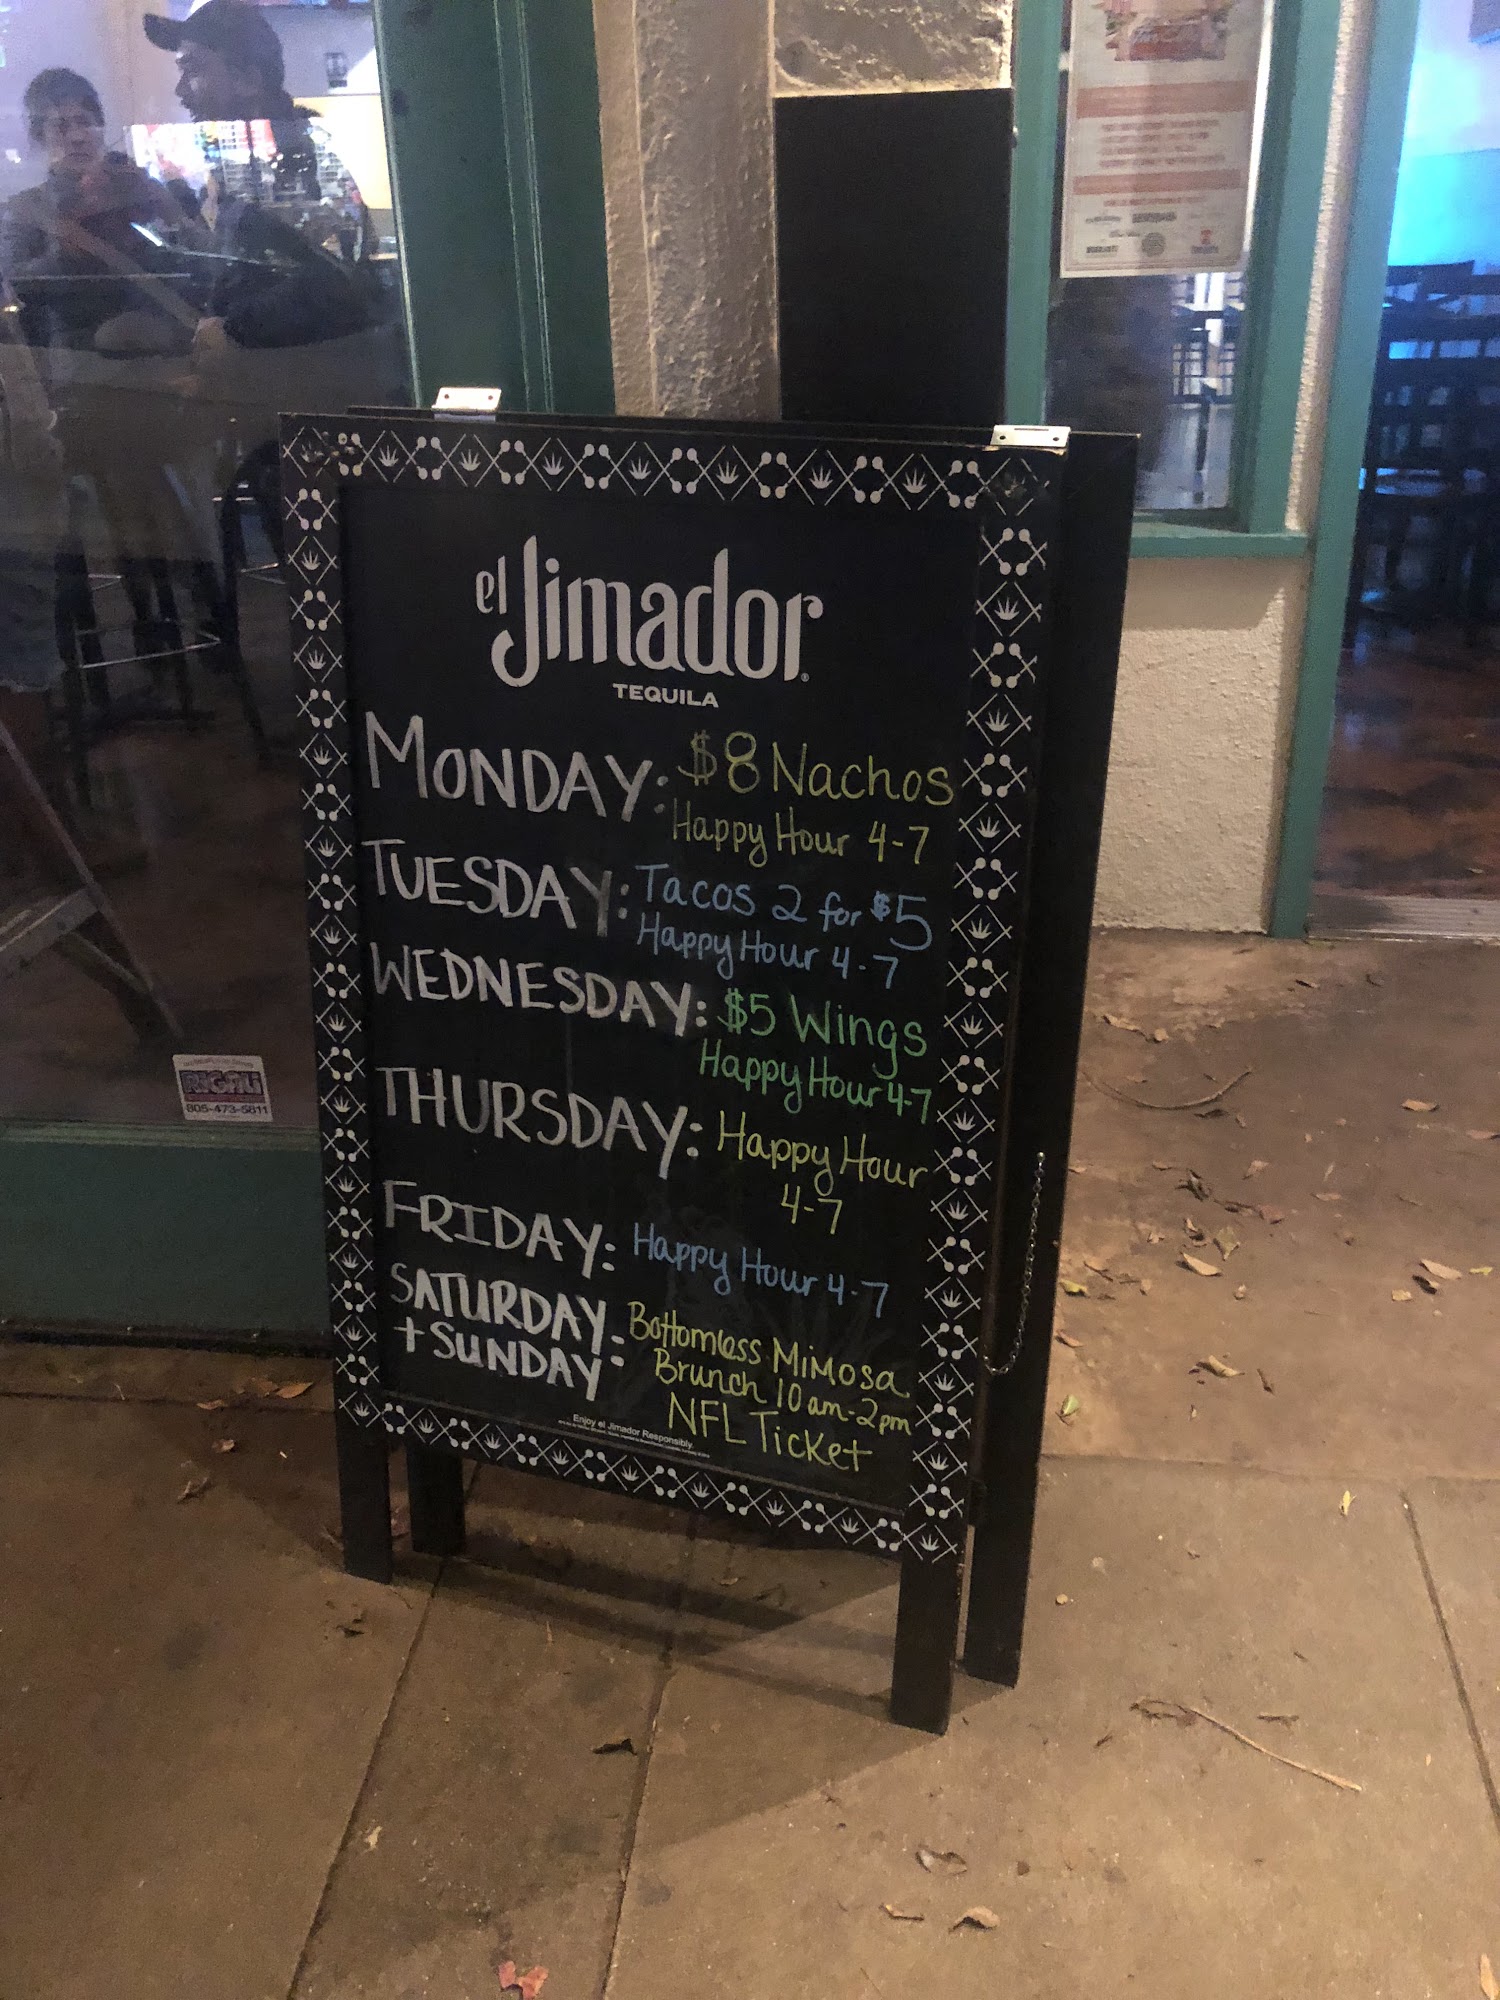 el Jimador
TEQUILA
MONDAY: $8 Nachos
Happy Hour 4-7
TUESDAY: Tacos 2 for $5
Happy Hour 4-7
WEDNESDAY: $5 Wings
Happy Hour 4-7
THURSDAY: Happy Hour
4-7
FRIDAY: Happy Hour 4-7
SATURDAY
+ SUNDAY: Bottomless MiMosa
Brunch 10am-2pm
NFL Ticket
Enjoy el Jimador Responsibly.
RIGALI
805-473-5811